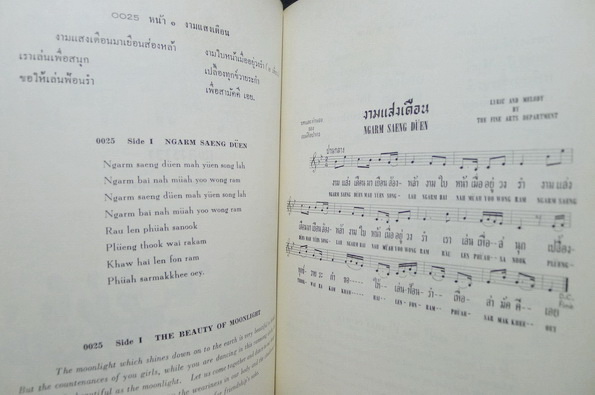 0025 หน้า ๑ งามแสงเดือน
งามแสงเดือนมาเยือนส่องหล้า
งามใบหน้าเมื่ออยู่วงรำ
เราเล่นเพื่อสนุก
เปลื้องทุกข์วายระกำ
ขอให้เล่นฟ้อนรำ
เพื่อสามัคคี เอย.
0025 Side I NGARM SAENG DÜEN
Ngarm saeng düen mah yüen song lah
Ngarm bai nah müah yoo wong ram
Ngarm saeng düen mah yüen song lah
Ngarm bai nah müah yoo wong ram
Rau len phüah sanook
Plüeng thook wai rakam
Khaw hai len fon ram
Phüah sarmakkhee oey.
0025 Side I THE BEAUTY OF MOONLIGHT
The moonlight which shines down on to the earth is very
But the countenances of you girls, while you are dancing in this
beautiful as the moonlight. Let us come together and
the weariness in our body and
friendship's sake.
งามแสงเดือน
NGARM SAENG DÜEN
LYRIC AND MELODY
BY
THE FINE ARTS DEPARTMENT
ปานกลาง
งาม แสง เดือน มา เยือน ส่อง หล้า งาม ใบ หน้า เมื่อ อยู่ วง รำ งาม แสง
NGARM SAENG DÜEN MAH YÜEN SONG LAH NGARM BAI NAH MÜAH YOO WONG RAM NGARM SAENG
เดือน มา เยือน ส่อง หล้า งาม ใบ หน้า เมื่อ อยู่ วง รำ เรา เล่น เพื่อ สนุก เปลื้อง
DÜEN MAH YÜEN SONG LAH NGARM BAI NAH MÜAH YOO WONG RAM RAU LEN PHÜAH SA NOOK PLÜENG
ทุกข์ วาย ระ กำ ขอ ให้ เล่น ฟ้อน รำ เพื่อ สา มัค คี เอย
THOOK WAI RA KAM KHAW HAI LEN FON RAM PHÜAH SAR MAK KHEE OEY
D.C.
Fine